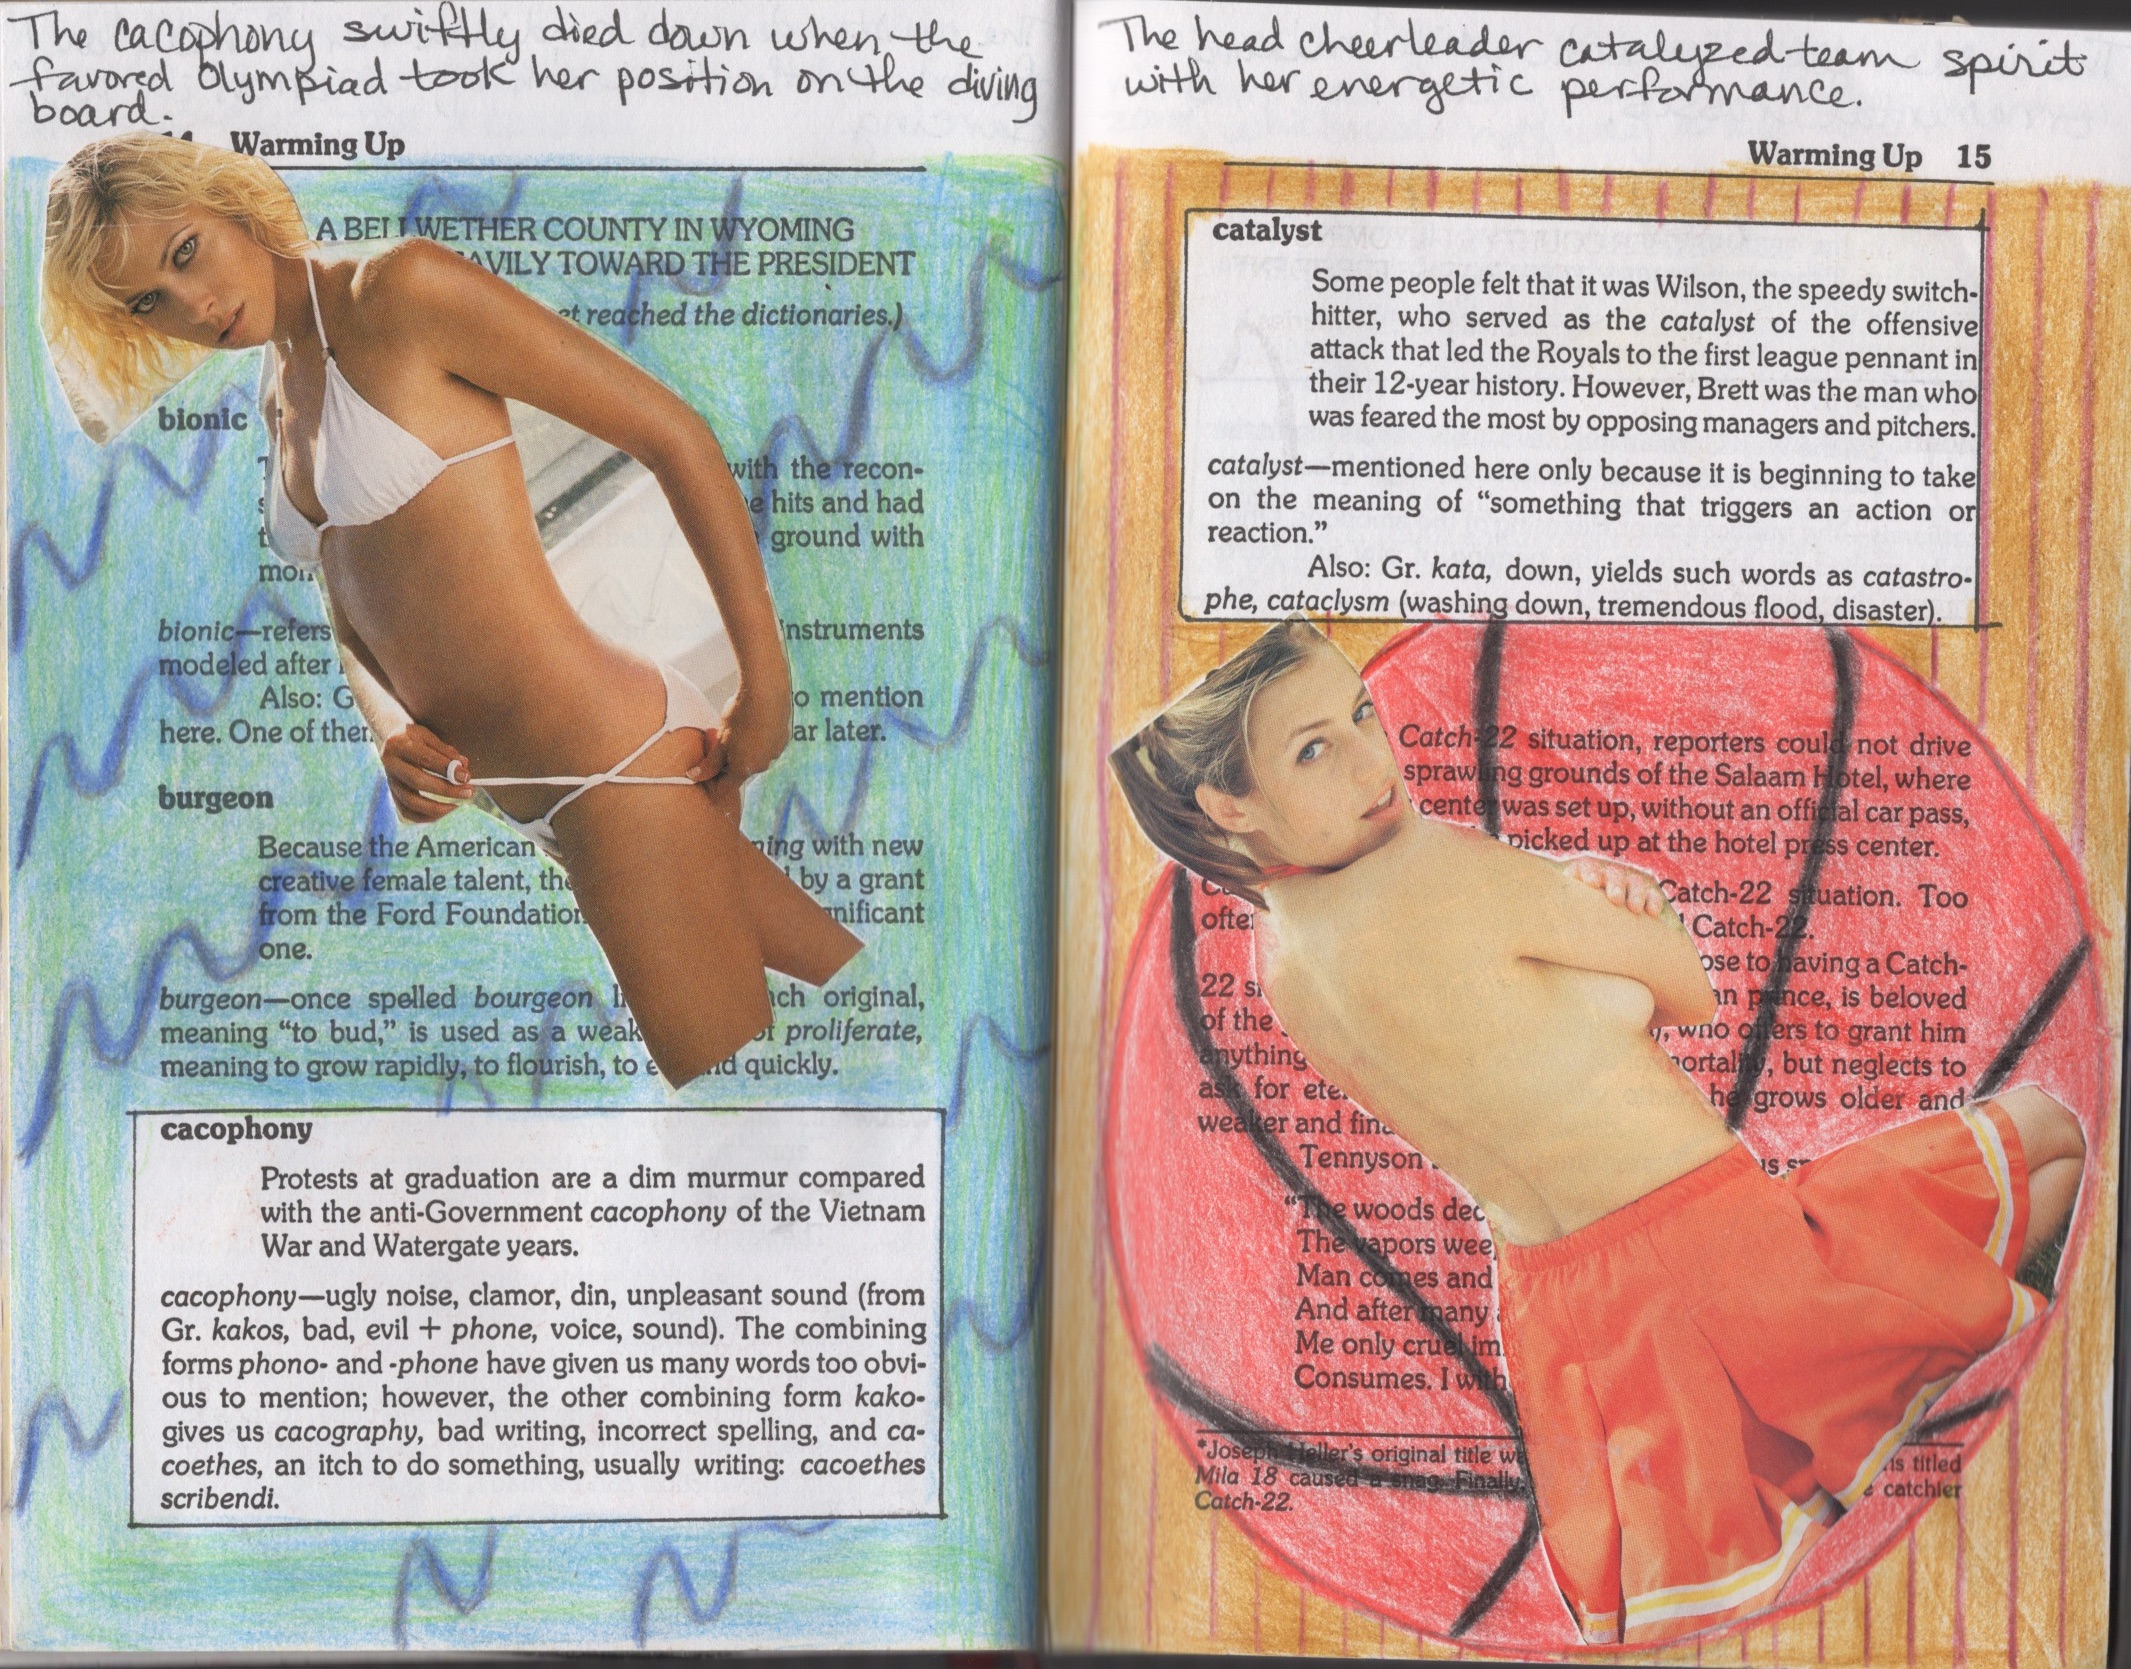 The cacophony swiftly died down when the
favored Olympiad took her position on the diving
board.
Warming Up
A BELLWETHER COUNTY IN WYOMING
TOWARD THE PRESIDENT
reached the dictionaries.)
bionic
with the recon-
hits and had
ground with
bionic—refers
instruments
modeled after
Also:
to mention
here. One of
later.
burgeon
Because the American
with new
creative female talent,
by a grant
from the Ford Foundation
one.
burgeon—once spelled bourgeon
original,
meaning “to bud,” is used as a
proliferate,
meaning to grow rapidly, to flourish, to
quickly.
cacophony
Protests at graduation are a dim murmur compared
with the anti-Government cacophony of the Vietnam
War and Watergate years.
cacophony—ugly noise, clamor, din, unpleasant sound (from
Gr. kakos, bad, evil + phone, voice, sound). The combining
forms phono- and -phone have given us many words too obvi-
ous to mention; however, the other combining form kako-
gives us cacography, bad writing, incorrect spelling, and ca-
coethes, an itch to do something, usually writing: cacoethes
scribendi.
The head cheerleader catalyzed team spirit
with her energetic performance.
Warming Up 15
catalyst
Some people felt that it was Wilson, the speedy switch-
hitter, who served as the catalyst of the offensive
attack that led the Royals to the first league pennant in
their 12-year history. However, Brett was the man who
was feared the most by opposing managers and pitchers.
catalyst—mentioned here only because it is beginning to take
on the meaning of “something that triggers an action or
reaction.”
Also: Gr. kata, down, yields such words as catastro-
phe, cataclysm (washing down, tremendous flood, disaster).
Catch-22 situation, reporters could not drive
sprawling grounds of the Salaam Hotel, where
center was set up, without an official car pass,
picked up at the hotel press center.
Catch-22 situation. Too
Catch-22.
to having a Catch-
22
prince, is beloved
of the
who offers to grant him
anything
but neglects to
ask for
he grows older and
weaker and
Tennyson
“The woods
The vapors
Man comes and
And after many
Me only cruel
Consumes. I
*Joseph Heller's original title
titled
Mila 18 caused a snag. Finally,
catchier
Catch-22.